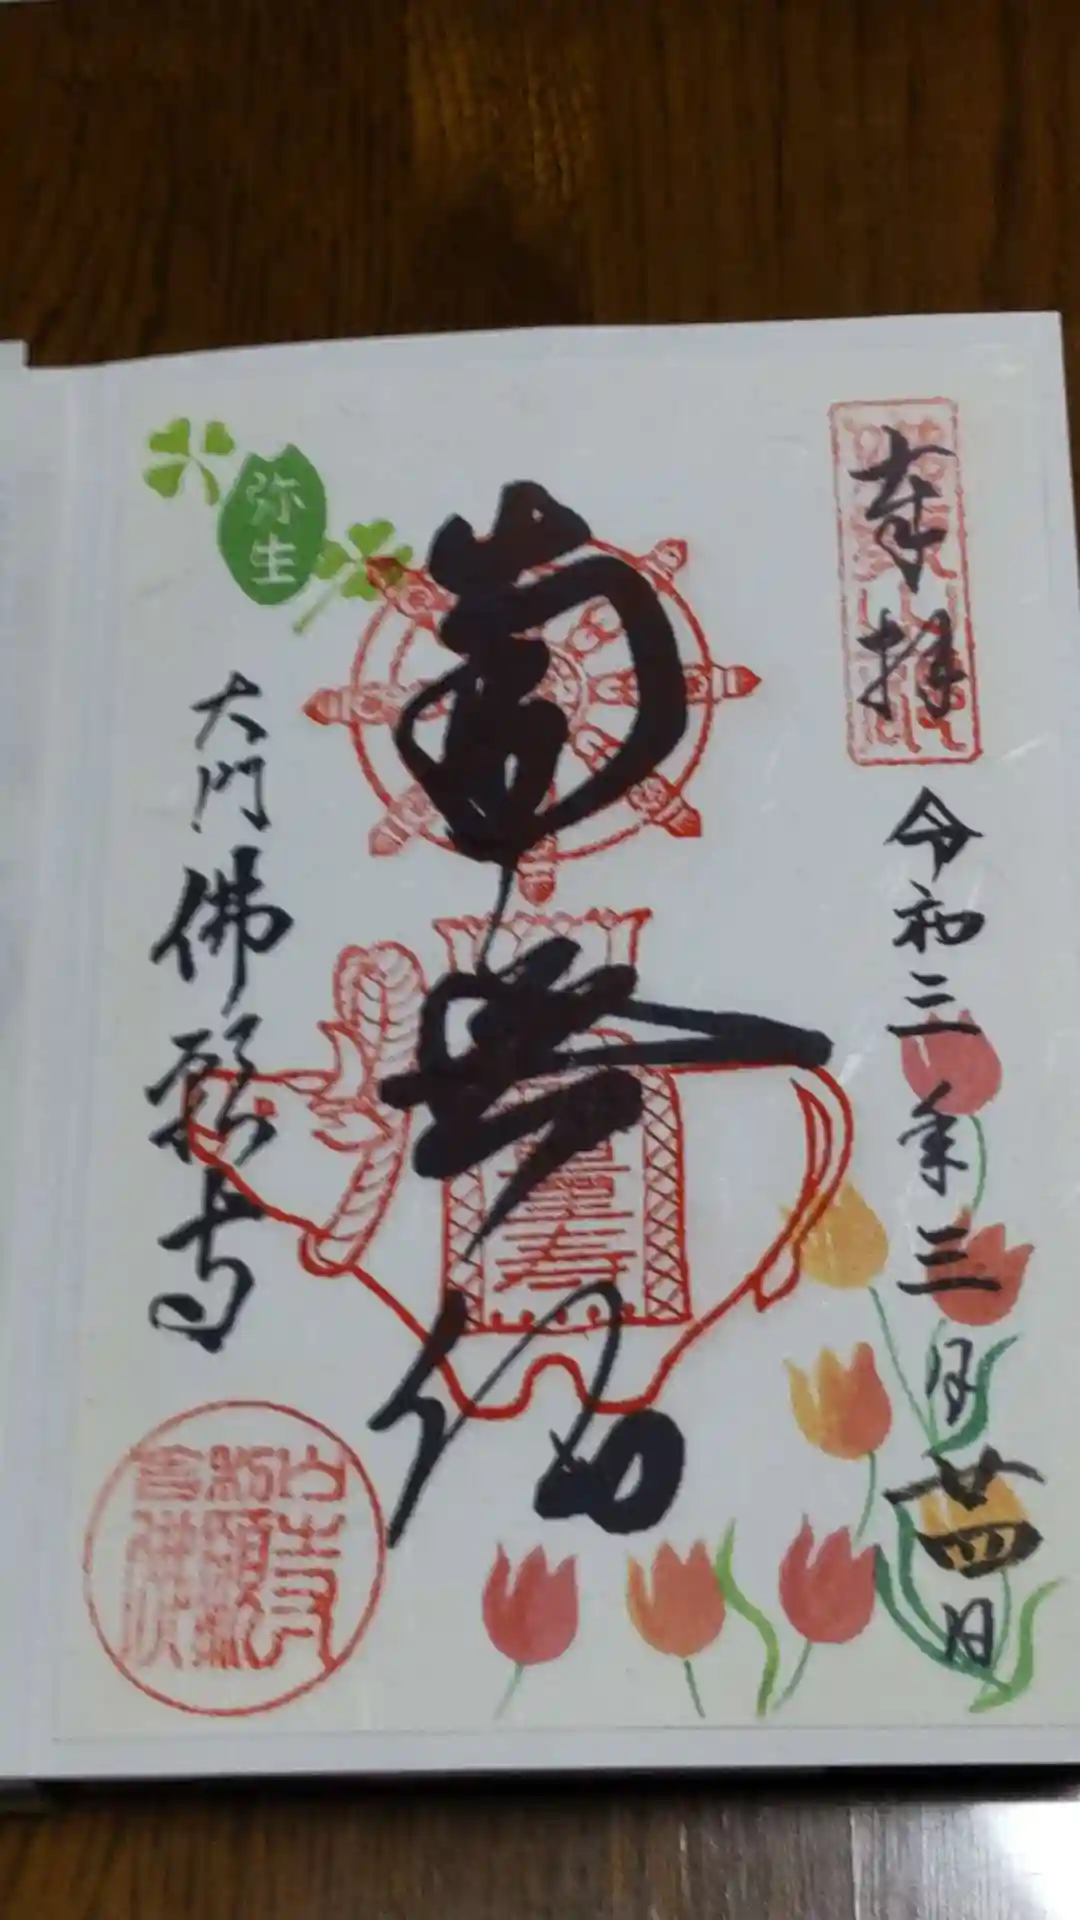 奉拝
令和三年三月廿四日
南無佛
大門佛願寺
弥生